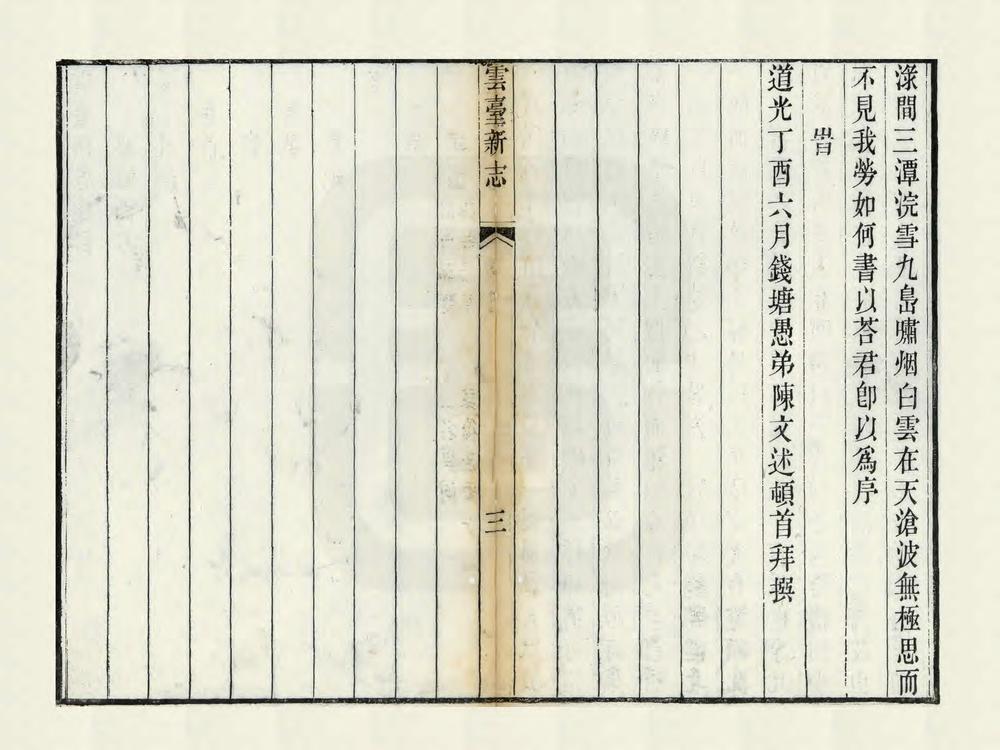 淥間三潭浣雪九島嘯烟白雲在天滄波無極思而
不見我勞如何書以荅君卽以為序
旹
道光丁酉六月錢塘愚弟陳文述頓首拜撰
雲臺新志
三